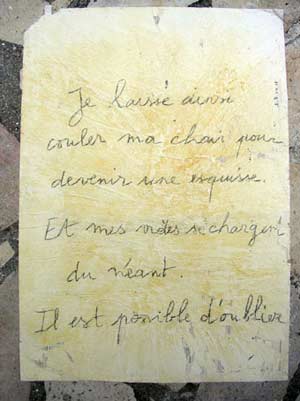 Je laisse ainsi
couler ma chair pour
devenir une esquisse.
Et mes vides se chargent
du néant.
Il est possible d'oublier